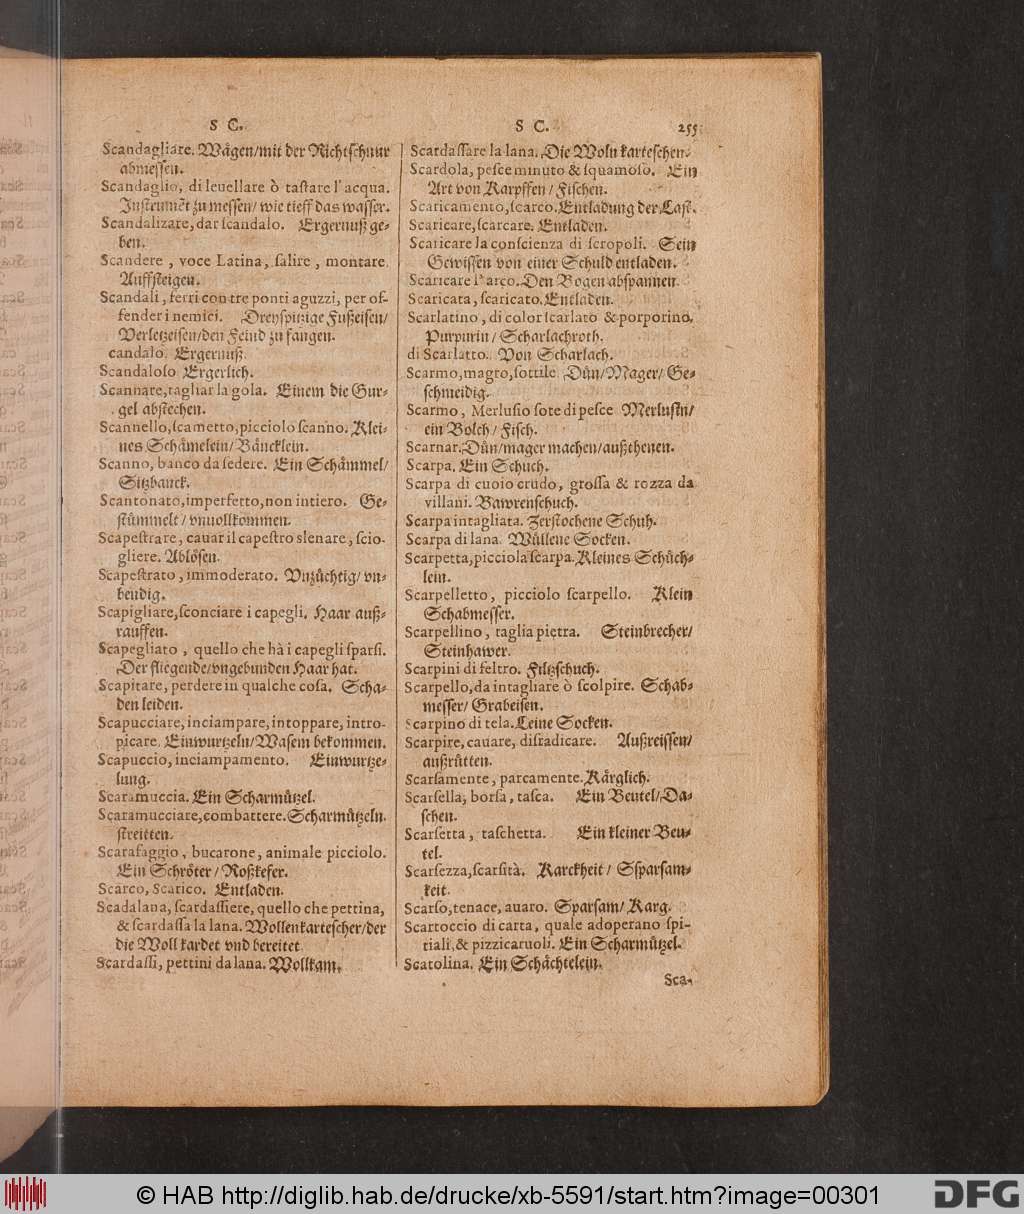 S C.
Scandagliare. Wägen/mit der Richtschnur
abmessen.
Scandaglio, di leuellare ò tastare l'acqua.
Instrumẽt zu messen/ wie tieff das wasser.
Scandalizare, dar scandalo. Ergernuß ge-
ben.
Scandere, voce Latina, salire, montare.
Auffsteigen.
Scandali, ferri con tre ponti aguzzi, per of-
fender i nemici. Dreyspitzige Fußeisen/
Verletzeisen/den Feind zu fangen.
candalo. Ergernuß.
Scandaloso Ergerlich.
Scannare, tagliar la gola. Einem die Gur-
gel abstechen.
Scannello, scametto, picciolo scanno. Klei-
nes Schämelein/ Bäncklein.
Scanno, banco da sedere. Ein Schämmel/
Sitzbanck.
Scantonato, imperfetto, non intiero. Ge-
stümmelt/ vnuollkommen.
Scapestrare, cauar il capestro slenare, scio-
gliere. Ablösen.
Scapestrato, immoderato. Vnzüchtig/ vn-
bendig.
Scapigliare, sconciare i capegli. Haar auß-
rauffen.
Scapegliato, quello che hà i capegli sparsi.
Der fliegende/vngebunden Haar hat.
Scapitare, perdere in qualche cosa. Scha-
den leiden.
Scapucciare, inciampare, intoppare, intro-
picare. Einwurtzeln/Wasem bekommen.
Scapuccio, inciampamento. Einwurtze-
lung.
Scaramuccia. Ein Scharmützel.
Scaramucciare, combattere. Scharmützeln.
streitten.
Scarafaggio, bucarone, animale picciolo.
Ein Schröter/ Roßkefer.
Scarco, Scarico. Entladen.
Scadalana, scardassiere, quello che pettina,
& scardassa la lana. Wollenkartescher/der
die Woll kardet vnd bereitet
Scardassi, pettini da lana. Wollkam.
S C. 255
Scardassare la lana. Die Woln karteschen.
Scardola, pesce minuto & squamoso. Ein
Art von Karpffen/ Fischen.
Scaricamento, scarco. Entladung der Last.
Scaricare, scarcare. Entladen.
Scaricare la conscienza di scropoli. Sein
Gewissen von einer Schuld entladen.
Scaricare l'arco. Den Bogen abspannen.
Scaricata, scaricato. Entladen.
Scarlatino, di color scarlato & porporino.
Purpurin/ Scharlachroth.
di Scarlatto. Von Scharlach.
Scarmo, magro, sottile Dün/Mager/ Ge-
schmeidig.
Scarmo, Merlusio sote di pesce Merlusin/
ein Bolch/ Fisch.
Scarnar. Dün/mager machen/außthenen.
Scarpa. Ein Schuch.
Scarpa di cuoio crudo, grossa & rozza da
villani. Bawrenschuch.
Scarpa intagliata. Zerstochene Schuh.
Scarpa di lana. Wüllene Socken.
Scarpetta, picciola scarpa. Kleines Schüch-
lein.
Scarpelletto, picciolo scarpello. Klein
Schabmesser.
Scarpellino, taglia pietra. Steinbrecher/
Steinhawer.
Scarpini di feltro. Filtzschuch.
Scarpello, da intagliare ò scolpire. Schab-
messer/ Grabeisen.
Scarpino di tela. Leine Socken.
Scarpire, cauare, disradicare. Außreissen/
außrütten.
Scarsamente, parcamente. Kärglich.
Scarsella, borsa, tasca. Ein Beutel/Da-
schen.
Scarsetta, taschetta. Ein kleiner Beu-
tel.
Scarsezza, scarsità. Karckheit/ Ssparsam-
keit.
Scarso, tenace, auaro. Sparsam/ Karg.
Scartoccio di carta, quale adoperano spi-
tiali, & pizzicaruoli. Ein Scharmützel.
Scatolina. Ein Schächtelein.
Sca-
© HAB http://diglib.hab.de/drucke/xb-5591/start.htm?image=00301
DFG